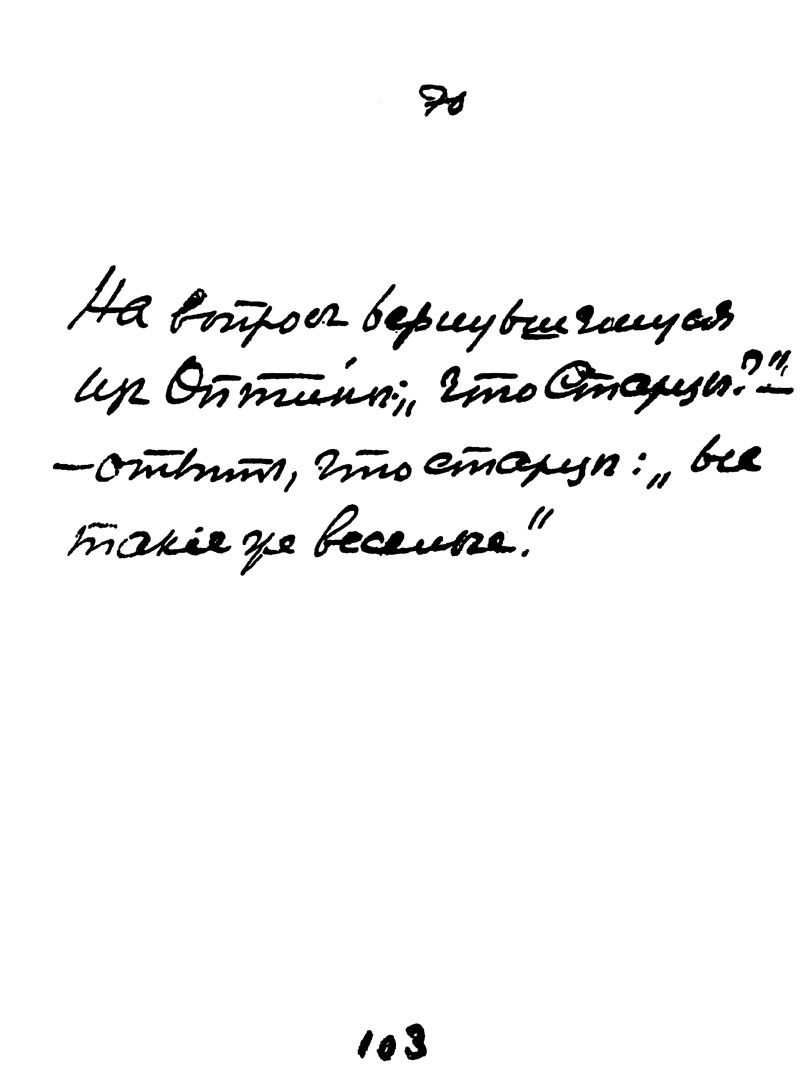 70
На вопросъ вернувшемуся
изъ Оптины: „что Старцы?“ —
— отвѣтъ, что старцы: „все
такіе же веселые.“
103